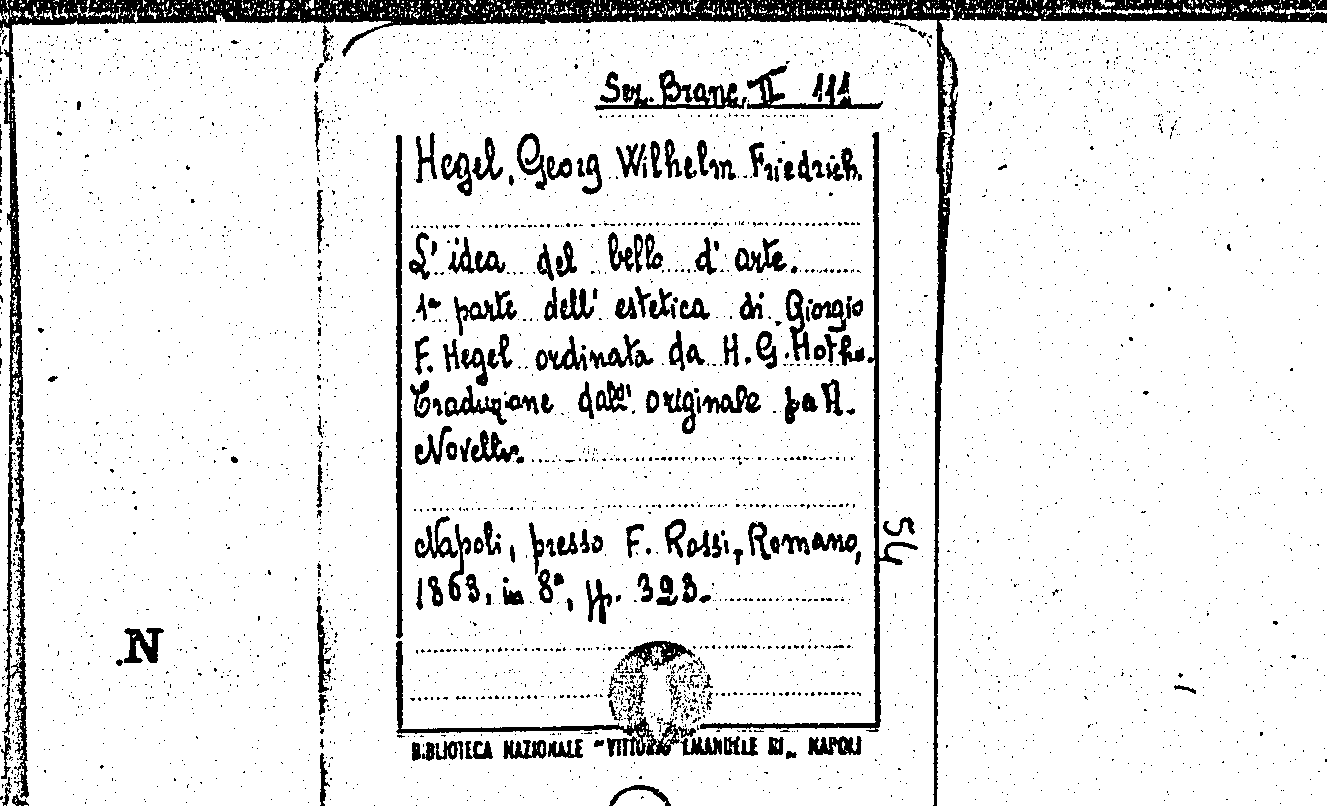 Sez. Branc. II 111
Hegel, Georg Wilhelm Friedrich.
L' idea del bello d' arte.
1ª parte dell' estetica di Giorgio
F. Hegel ordinata da H. G. Hotho.
Traduzione dall' originale pa A.
Novelli.
Napoli, presso F. Rossi, Romano,
1863, in 8°, pp. 323.
54
.N
BIBLIOTECA NAZIONALE "VITTORIO EMANUELE III„ NAPOLI